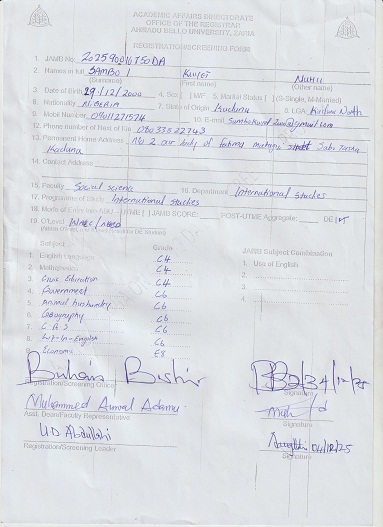 ACADEMIC AFFAIRS DIRECTORATE
OFFICE OF THE REGISTRAR
AHMADU BELLO UNIVERSITY, ZARIA
REGISTRATION/SCREENING FORM
1. JAMB No.
2. Names in full SAMBO 1 Nuhu
(Surname) (First name) (Other name)
3. Date of Birth 29/12/2000 4. Sex [ ] M/F 5. Marital Status [ ] (S-Single, M-Married)
6. Nationality NIGERIA 7. State of Origin Kaduna 8. LGA North
9. Mobil Number 10. E-mail
12. Phone number of Next of Kin 08033522743
13. Permanent Home Address No 2 our lady of fatima Sabi Tasha
Kaduna
14. Contact Address
15. Faculty Social science 16. Department International studies
17. Programme of Study International studies
18. Mode of Entry UTME [ ] JAMB SCORE: POST-UTME Aggregate: DE
19. O'Level WAEC/NECO
Subject Grade JAMB Subject Combination
1. English Language C4 1. Use of English
2. Mathematics C4 2.
3. Civic Education C4 3.
4. Government C6 4.
5. Animal husbandry C6
6. Geography C6
7. C.R.S C6
8. Lit-In-English C6
9. Economics E8
Registration/Screening Officer Signature
Muhammed Auwal Adamu
Asst. Dean/Faculty Representative Signature
UD Abdullahi 04/12/25
Registration/Screening Leader Signature